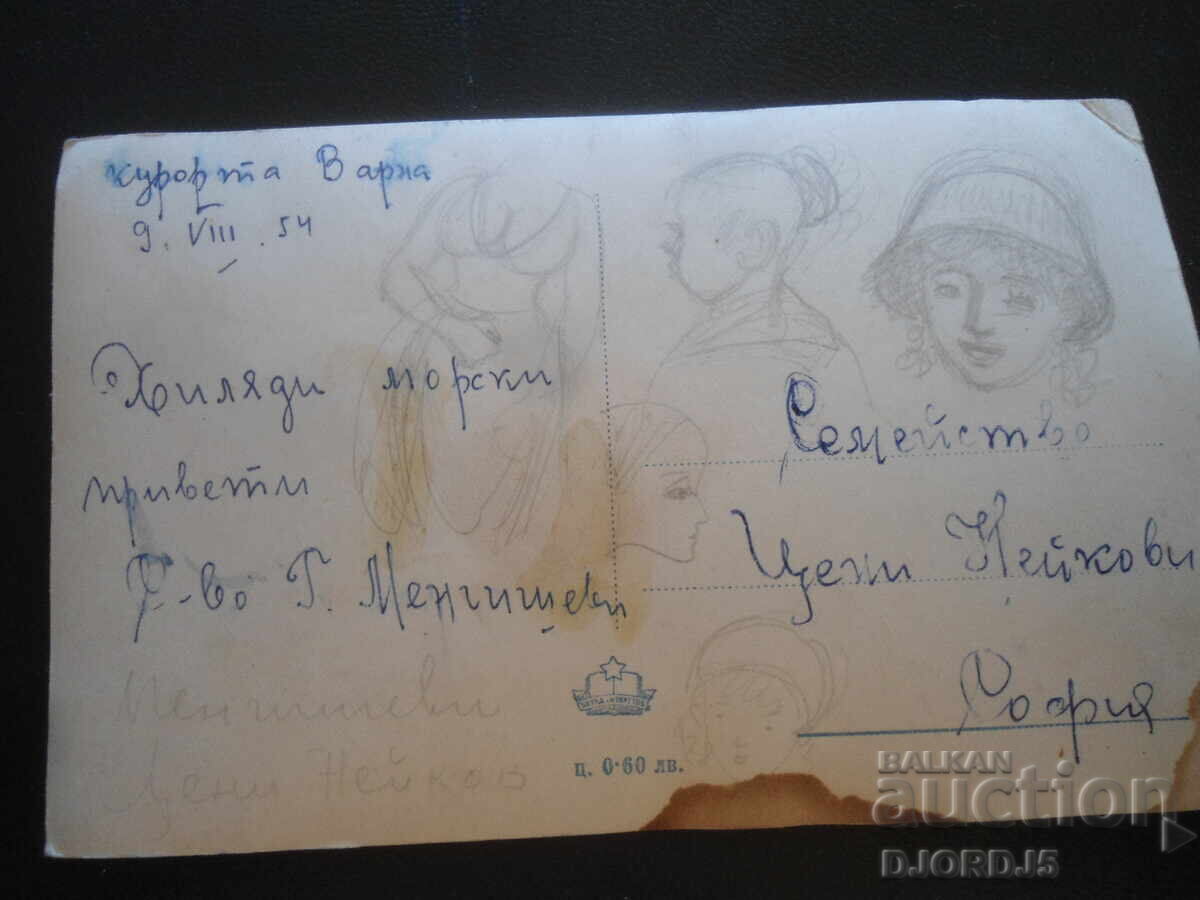 курорта Варна
9. VIII. 54
Хиляди морски
привети
С-во Г. Менгишеви
Менгишеви
Цени Нейков
Семейство
Цени Нейкови
София
ц. 0·60 лв.
BALKAN
auction
DJORDJ5